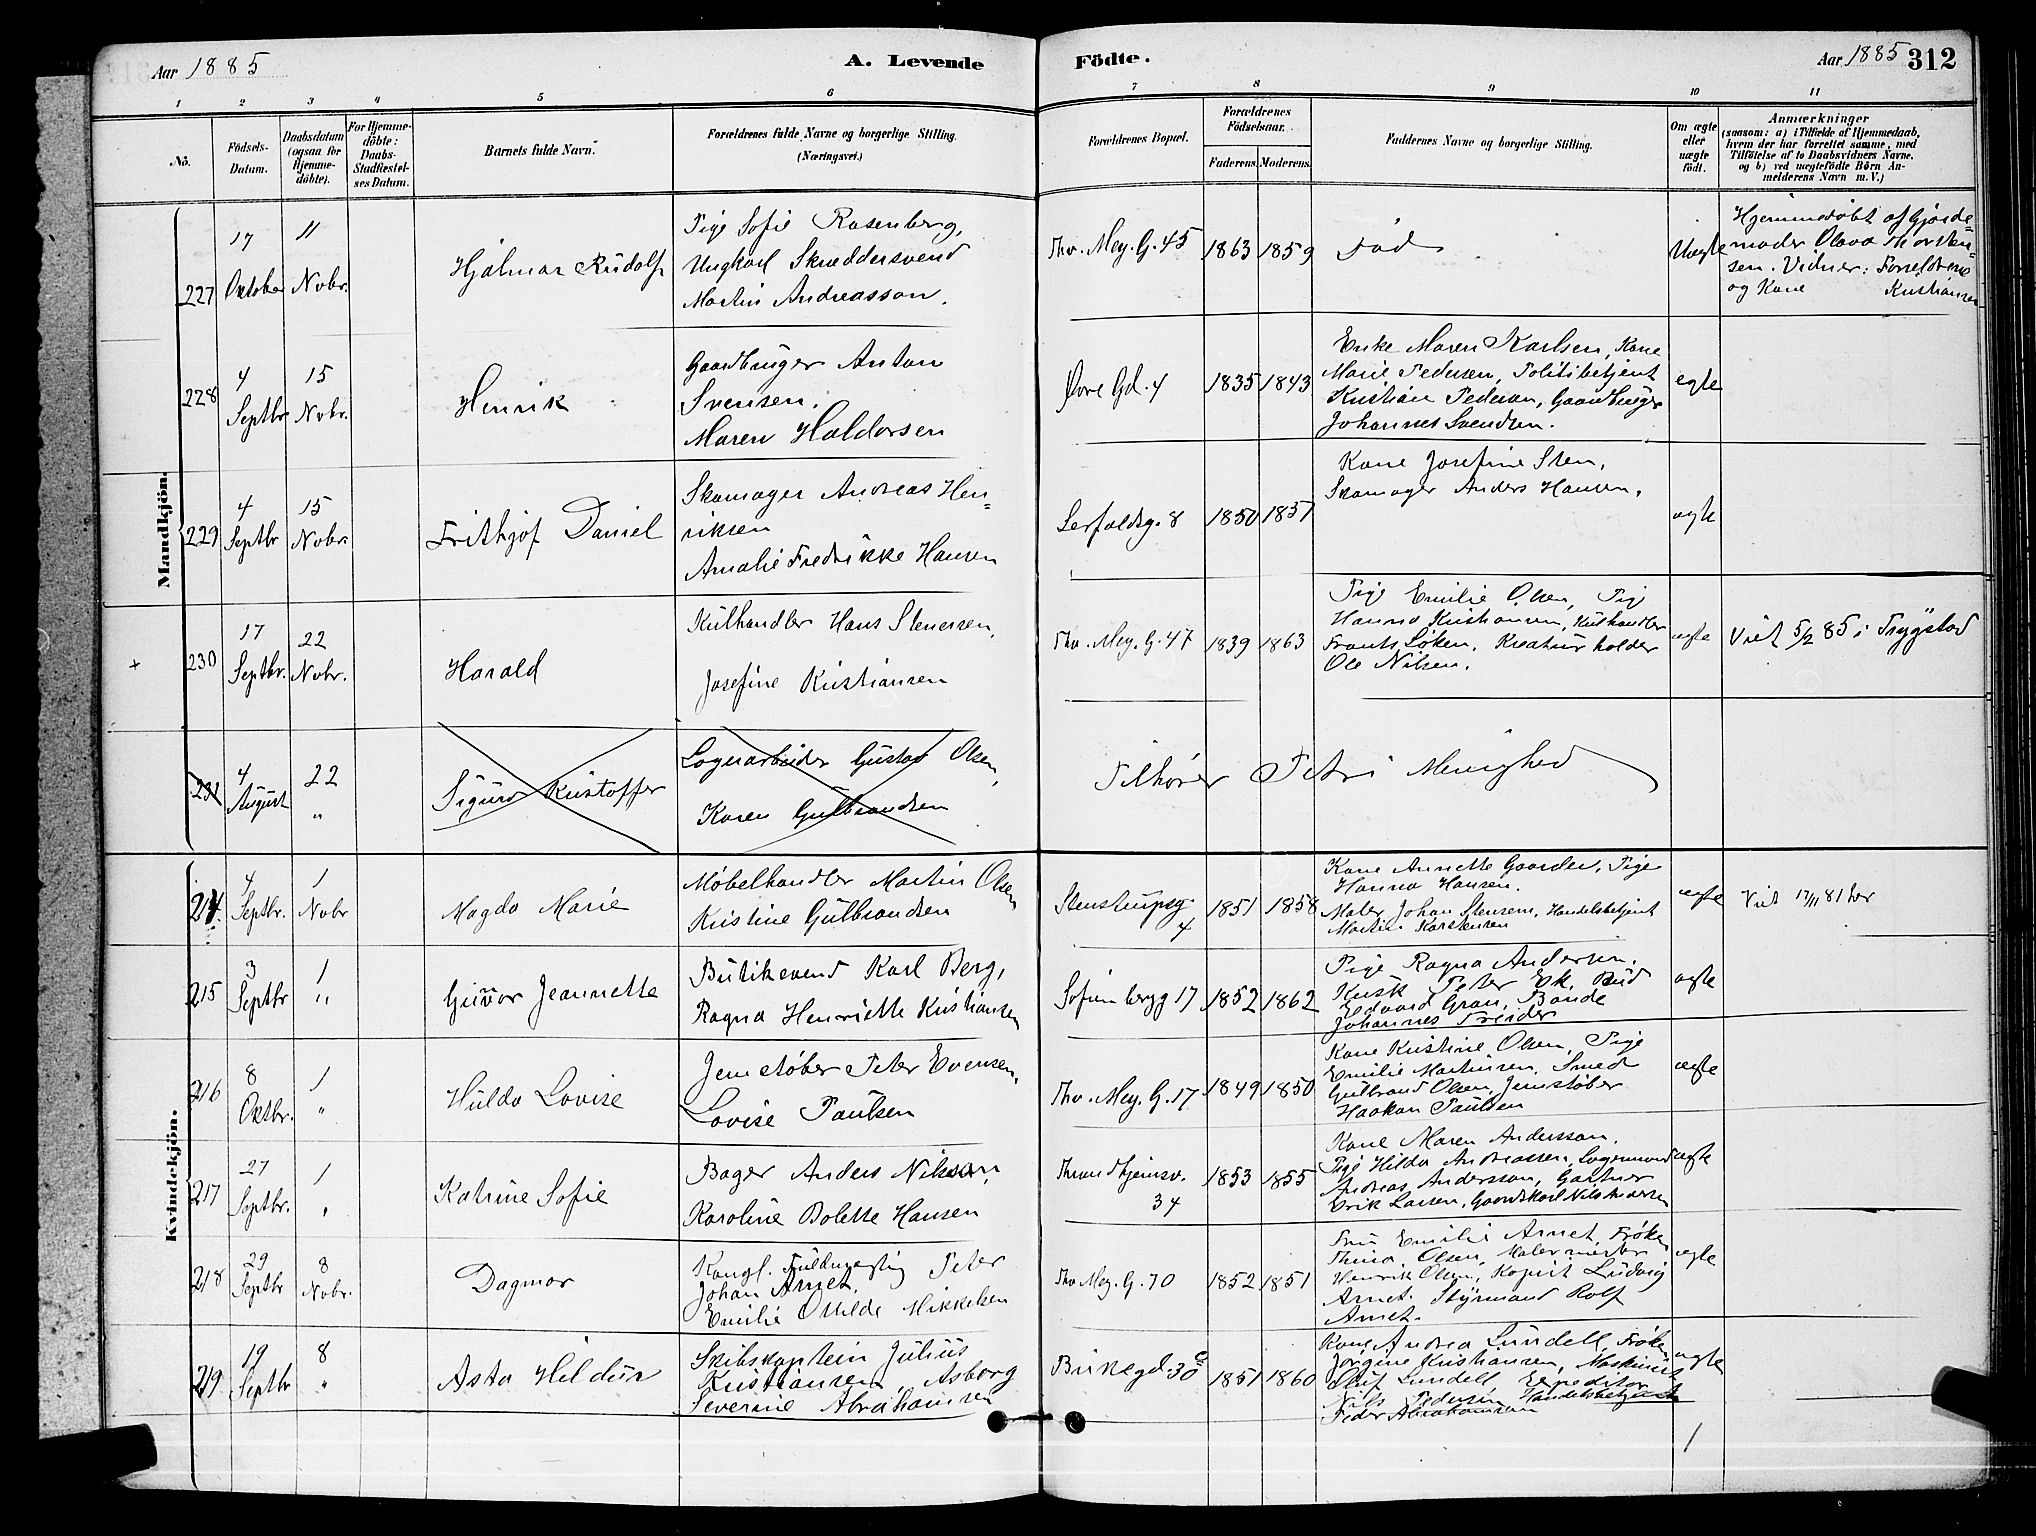 Aar 1885
A. Levende
Födte.
Aar 1885
312
1 2 3 4 5 6 7 8 9 10 11
No.
Födsels-
Datum.
Daabsdatum
(ogsaa for
Hjemme-
döbte).
For Hjemme-
döbte:
Daabs-
Stadfæstel-
ses Datum.
Barnets fulde Navn.
Forældrenes fulde Navne og borgerlige Stilling.
(Næringsvei.)
Forældrenes Bopæl.
Forældrenes
Födselsaar.
Faderens. Moderens.
Faddernes Navne og borgerlige Stilling.
Om ægte
eller
uægte
födt.
Anmærkninger
(saasom: a) i Tilfælde af Hjemmedaab,
hvem der har forrettet samme, med
Tilföielse af to Daabsvidners Navne,
og b) ved uægtefödte Börn An-
melderens Navn m. V.)
Mandkjön.
227
17
Oktober
11
Novbr.
Hjalmar Rudolf
Pige Sofie Rosenberg,
Ungkarl Skræddersvend
Martin Andreasson.
Thv. Mey. G. 45
1863 1859
Død
Uægte
Hjemmedøbt af Gjorde=
moder Olava Thorsten=
sen. Vidner: Forældrene
og Kone Kristiansen
228
4
Septbr
15
Novbr.
Henrik
Gaardbruger Anton
Svensen.
Maren Haldorsen
Øvre Gd. 4
1835 1843
Enke Maren Karlsen, Kone
Marie Pedersen, Politibetjent
Kristian Pedersen, Gaardbruger
Johannes Svendsen.
egte
229
4
Septbr
15
Novbr
Frithjof Daniel
Skomager Andreas Hen=
riksen
Amalie Fredrikke Hansen
Lerfaldsg. 8
1850 1851
Kone Josefine Sten,
Skomager Anders Hansen.
ægte
+
230
17
Septbr.
22
Novbr.
Harald
Kulhandler Hans Stenersen,
Josefine Kristiansen
Thv. Mey. G. 47
1839 1863
Pige Emilie Olsen, Pige
Hanna Kristiansen, Kulhandler
Frants Løken, Kreaturholder
Ole Nilsen.
ægte
Viet 5/2 85 i Trygstad
231
4
August
22
"
Sigurd Kristoffer
Løgnarbeider Gustav Olsen,
Karen Gulbrandsen
Tilhører Petri Menighed
Kvindekjön.
214.
4
Septbr.
1
Novbr
Magda Marie
Møbelhandler Martin Olsen
Kristine Gulbrandsen
Stenstrupsg.
4
1851 1858
Kone Annette Gaarder, Pige
Hanna Hansen.
Maler Johan Stensen, Handelsbetjent
Martin Karstensen
ægte
Viet 17/11 81 her
215
3
Septbr
1
"
Gunvor Jeannette
Butiksvend Karl Berg,
Ragna Henriette Kristiansen
Sofienbergg 17
1852 1862
Pige Ragna Andersen,
Kusk Peter Ek, Bud
Edvard Gran, Bonde
Johannes Treider
ægte
216
8
Oktbr.
1
"
Hulda Lovise
Jernstøber Peter Evensen,
Lovise Paulsen
Thv. Mey. G. 17
1849 1850
Kone Kristine Olsen, Pige
Emilie Martinsen, Smed
Gulbrand Olsen, Jernstøber
Haakon Paulsen
ægte
217
27
Septbr.
1
"
Katrine Sofie
Bager Anders Nilsson,
Karoline Bolette Hansen
Throndhjemsv.
34
1853 1855
Kone Maren Andersson,
Pige Hilda Andreassen, Lagermand
Andreas Andersson, Gartner
Erik Larsen, Gaardskarl Nils
ægte
218
29
Septbr
8
Novbr.
Dagmar
Kongl. Fuldmægtig Peter
Johan Arnet.
Emilie Othilde Mikkelsen
Thv Mey. G. 70
1852 1851
Fru Emilie Arnet, Frøken
Thina Olsen, Malermester
Henrik Olsen, Kopist Ludvig
Arnet. Styrmand Rolf
Arnet.
ægte
219
19
Septbr
8
"
Asta Hildur
Skibskaptein Julius
Kristiansen Asborg
Severine Abrahamsen
Birkegd. 30
1851 1860
Kone Andrea Lundell, Frøken
Jørgine Kristiansen, Maskinist
Oluf Lundell Expeditør
Nils Pedersen Handelsbetjent
Peder Abrahamsen
ægte
1